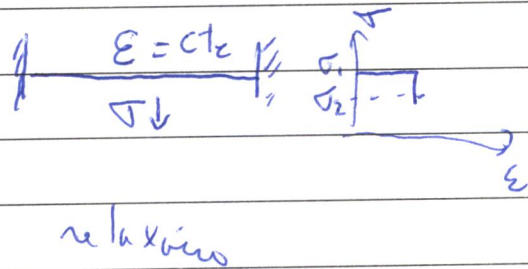 ε = cte
σ↓
σ
σ₁
σ₂
ε
relaxõeso